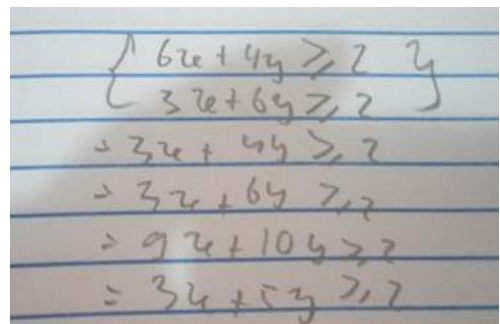 { 6x + 4y ≥ 2 }
3x + 6y ≥ 2
= 3x + 4y ≥ 2
= 3x + 6y ≥ 2
= 9x + 10y ≥ 2
= 3x + 5y ≥ 2